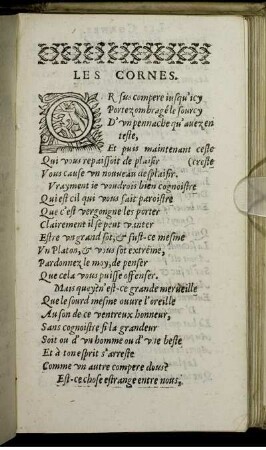 LES CORNES.
OR sus compere iusqu'icy
Portez ombragé le sourcy
D'vn pennache qu'auez en
teste,
Et puis maintenant ceste
Qui vous repaissoit de plaisir (creste
Vous cause vn nouueau desplaisir.
Vrayment ie voudrois bien cognoistre
Qui est cil qui vous fait paroistre
Que c'est vergongne les porter
Clairement il se peut vanter
Estre vn grand sot, & fust-ce mesme
Vn Platon, & vous sot extréme,
Pardonnez le moy, de penser
Que cela vous puisse offenser.
Mais quoy? n'est-ce grande merueille
Que le sourd mesme ouure l'oreille
Au son de ce ventreux honneur,
Sans cognoistre si la grandeur
Soit ou d'vn homme ou d'vne beste
Et à ton esprit s'arreste
Comme vn autre compere doux?
Est-ce chose estrange entre nous,